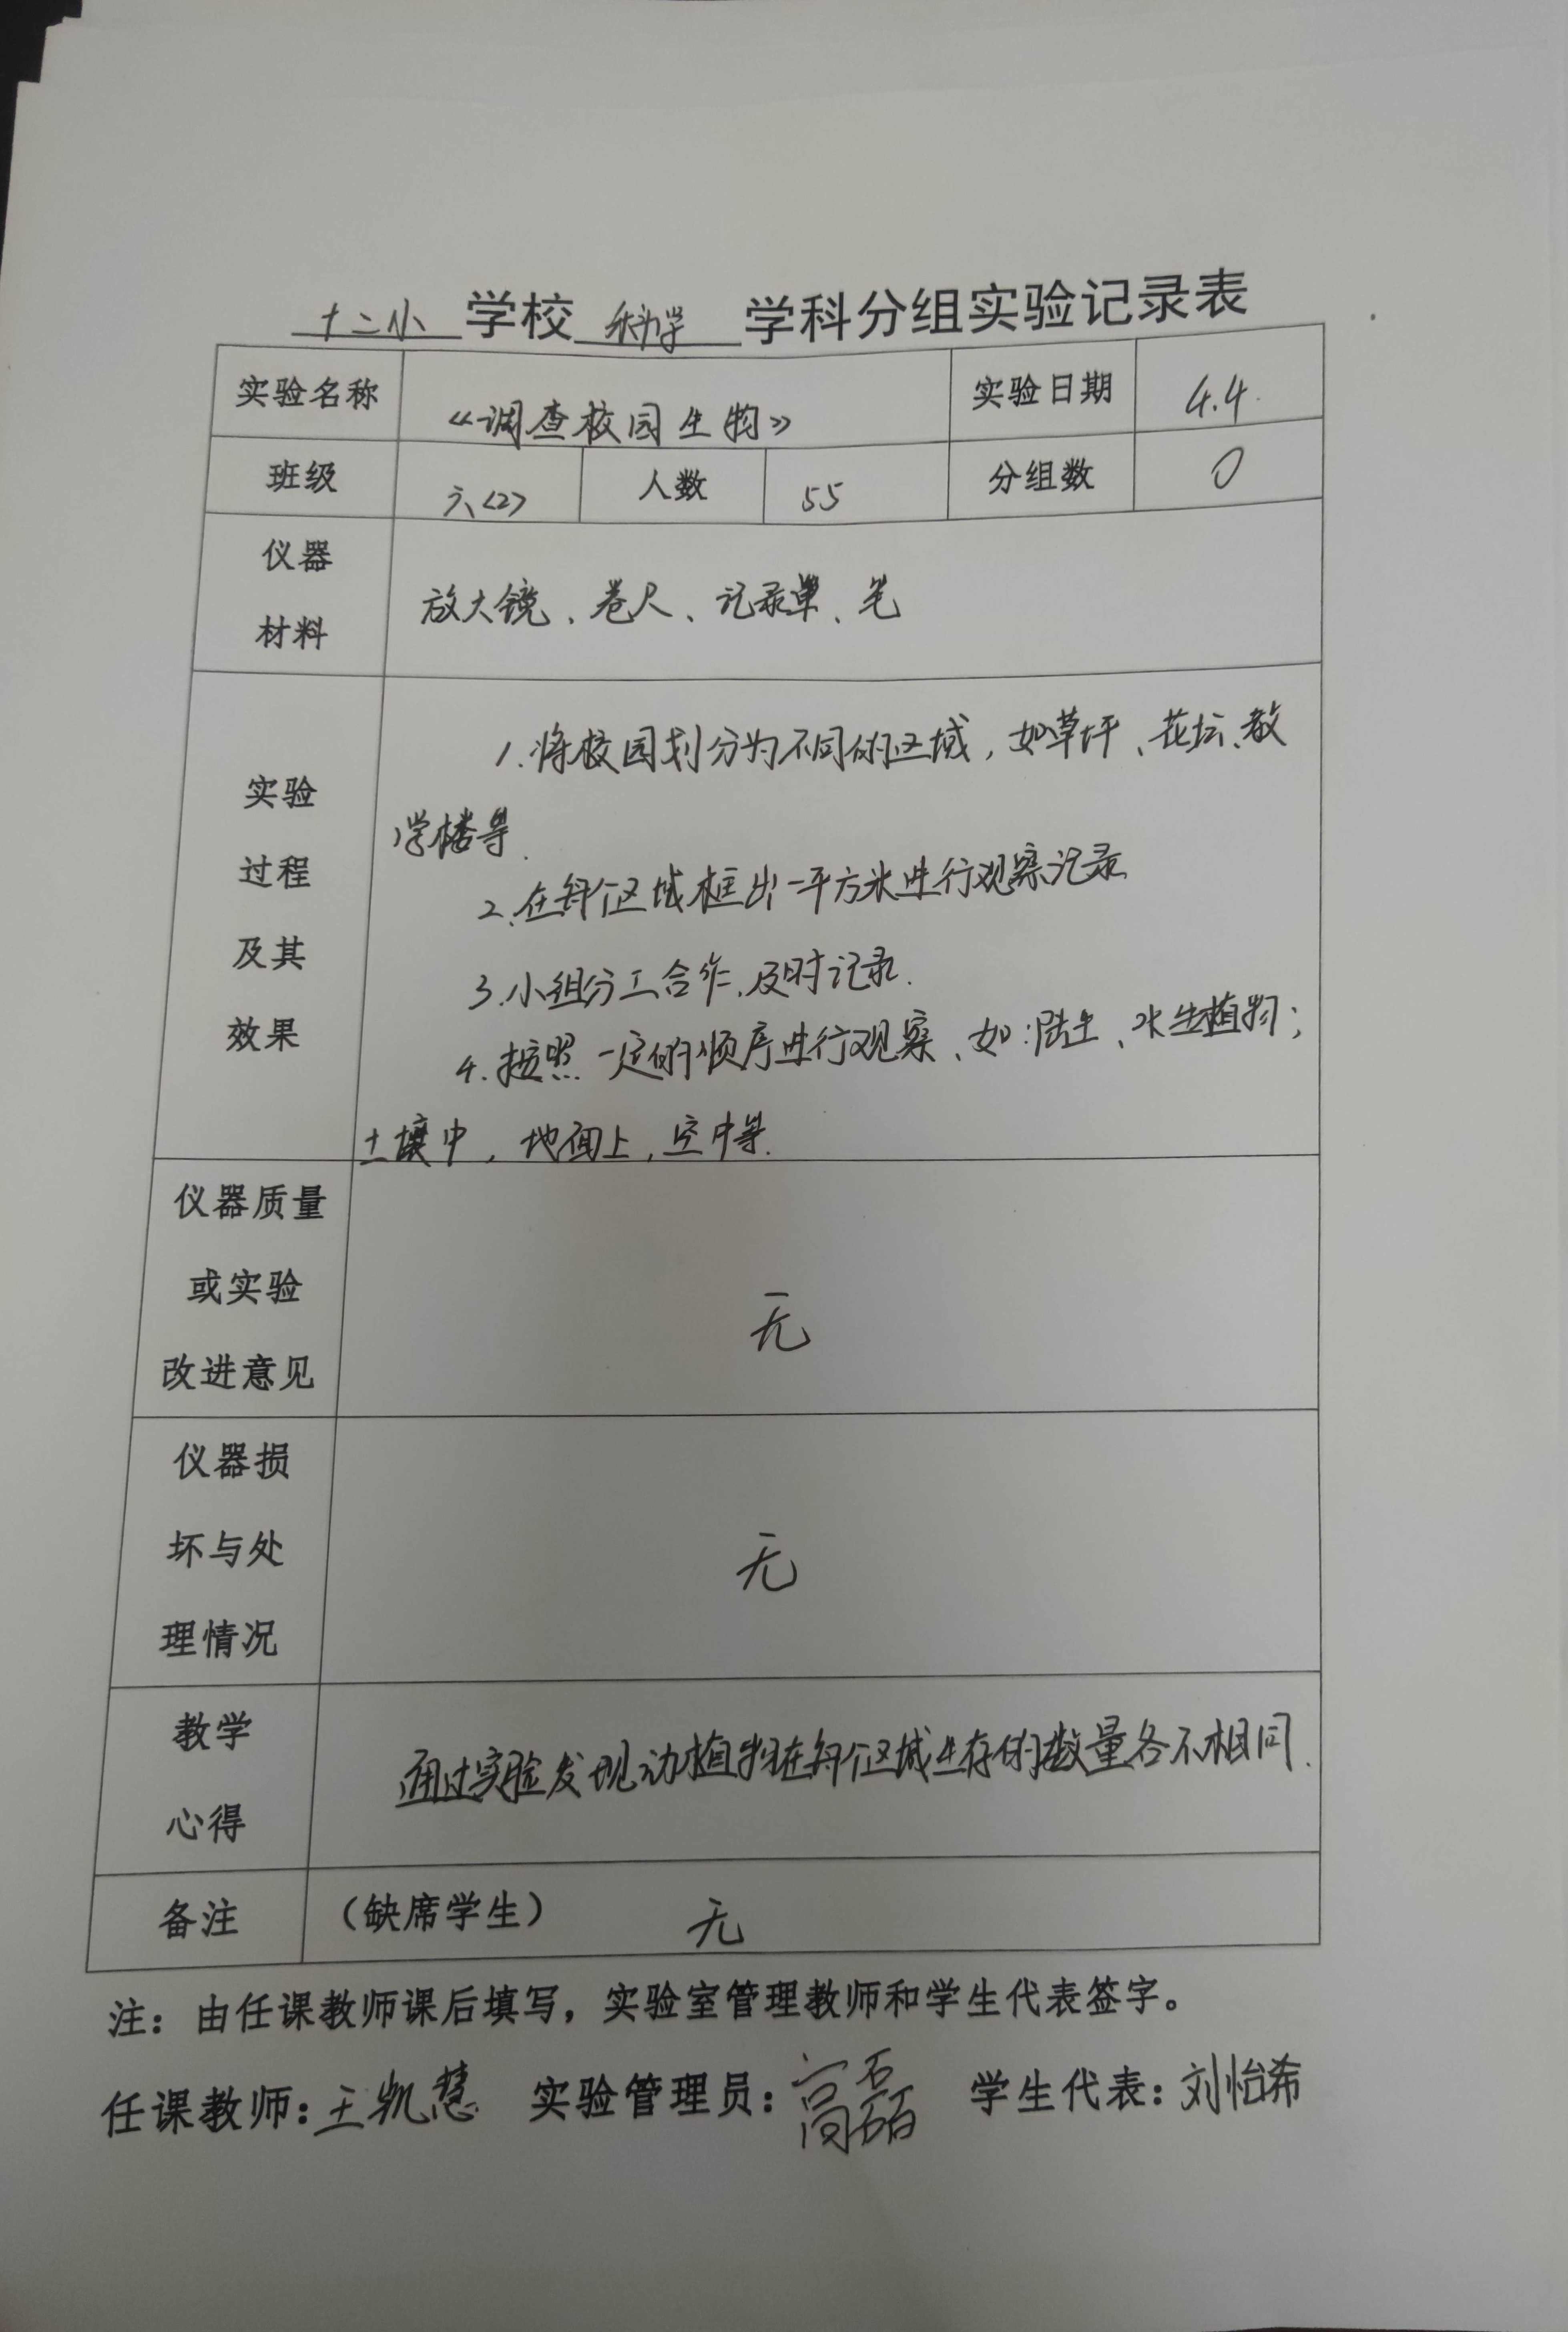 十二小 学校 科学 学科分组实验记录表
实验名称 《调查校园生物》 实验日期 4.4.
班级 六<2> 人数 55 分组数 0
仪器
材料
放大镜、卷尺、记录单、笔
实验
过程
及其
效果
1.将校园划分为不同的区域，如草坪、花坛、教
学楼等.
2.在每个区域框出一平方米进行观察记录
3.小组分工合作，及时记录.
4.按照一定的顺序进行观察、如:陆生、水生植物；
土壤中，地面上，空中等.
仪器质量
或实验
改进意见
无
仪器损
坏与处
理情况
无
教学
心得
通过实验发现动植物在每个区域生存的数量各不相同.
备注 （缺席学生） 无
注：由任课教师课后填写，实验室管理教师和学生代表签字。
任课教师:王凯慧 实验管理员:高磊 学生代表:刘怡希